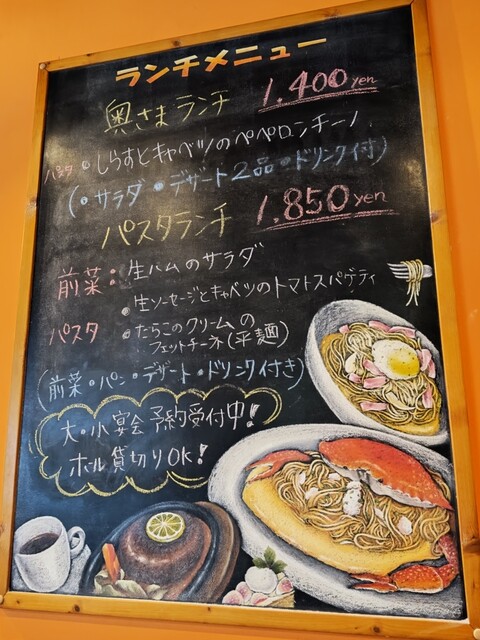 ランチメニュー
奥さまランチ 1.400yen
パスタ・しらすとキャベツのペペロンチーノ
(・サラダ・デザート2品・ドリンク付)
パスタランチ 1.850yen
前菜:生ハムのサラダ
・生ソーセージとキャベツのトマトスパゲティ
パスタ ・たらこのクリームの
フェットチーネ(平麺)
(前菜・パン・デザート・ドリンク付き)
大・小宴会 予約受付中!
ホール貸切りOK!